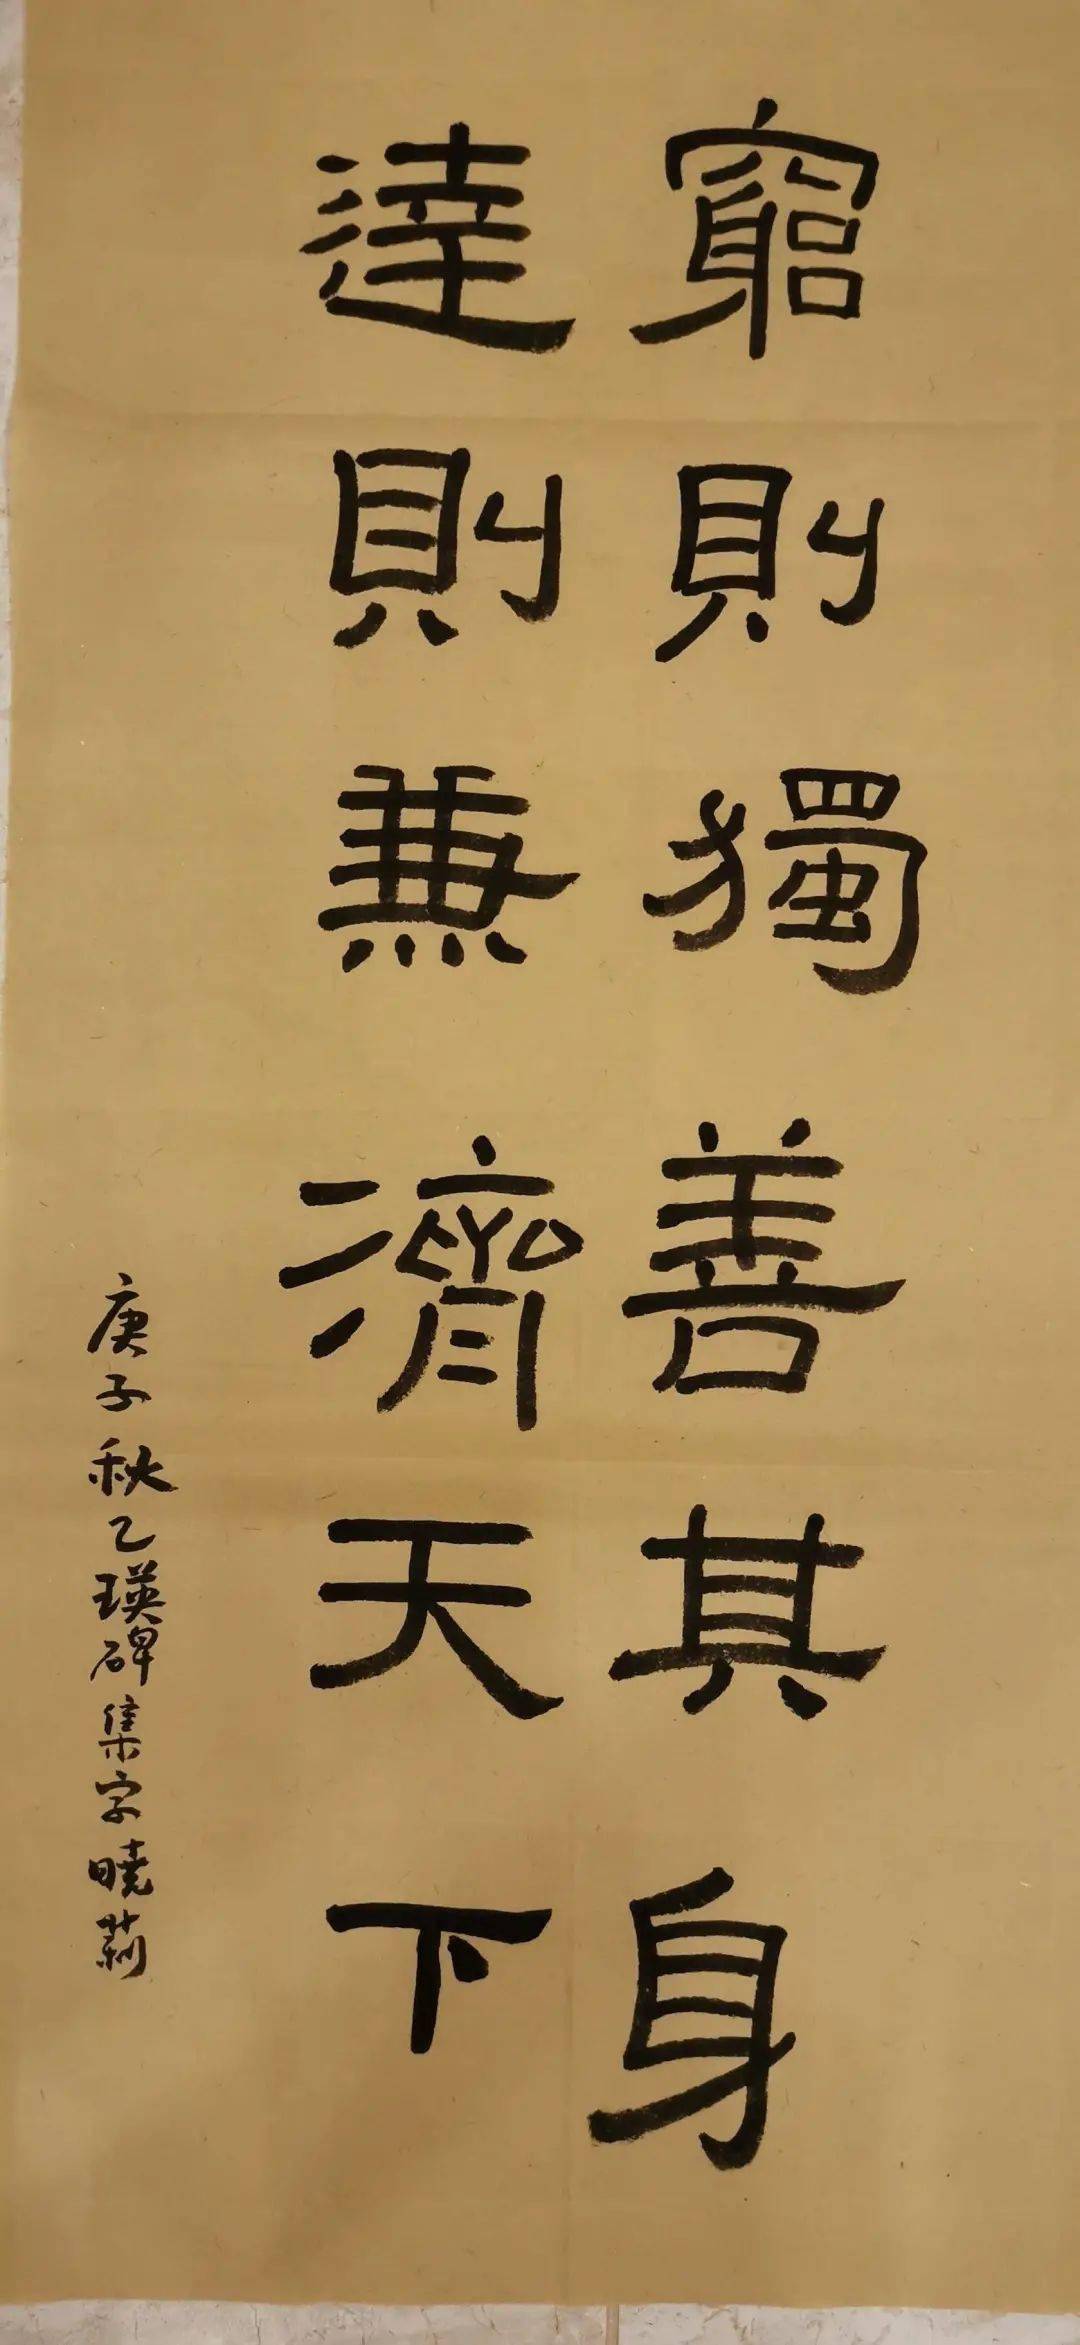 窮則獨善其身
達則兼濟天下
庚子秋乙瑛碑集字曉莉